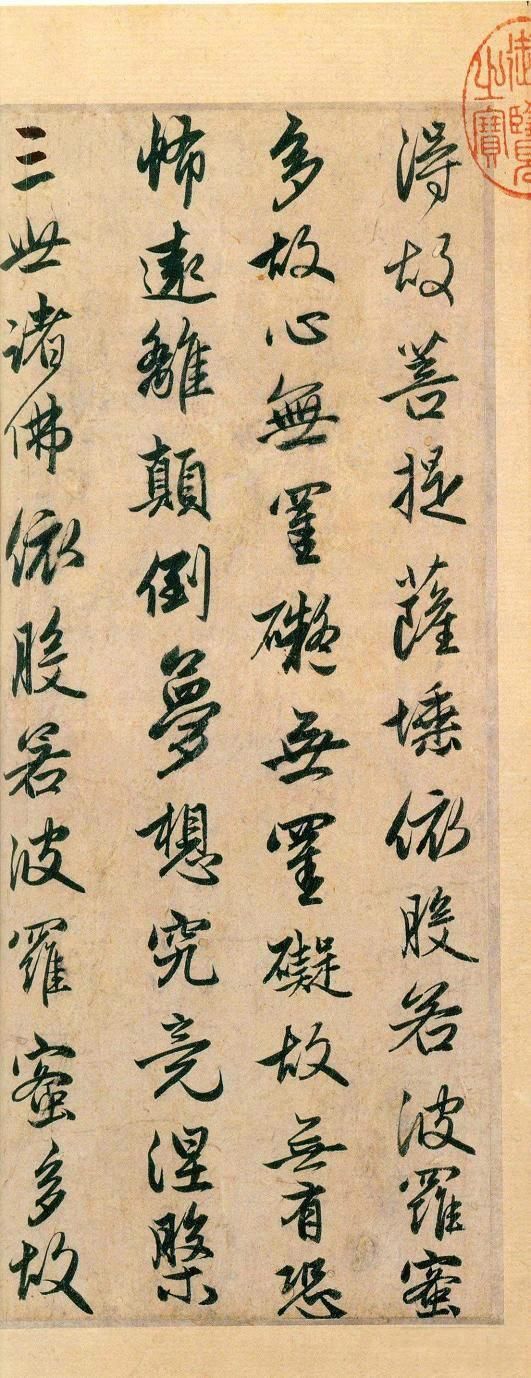 御覽
之寶
得故菩提薩埵依般若波羅蜜
多故心無罣礙無罣礙故無有恐
怖遠離顛倒夢想究竟涅槃
三世諸佛依般若波羅蜜多故